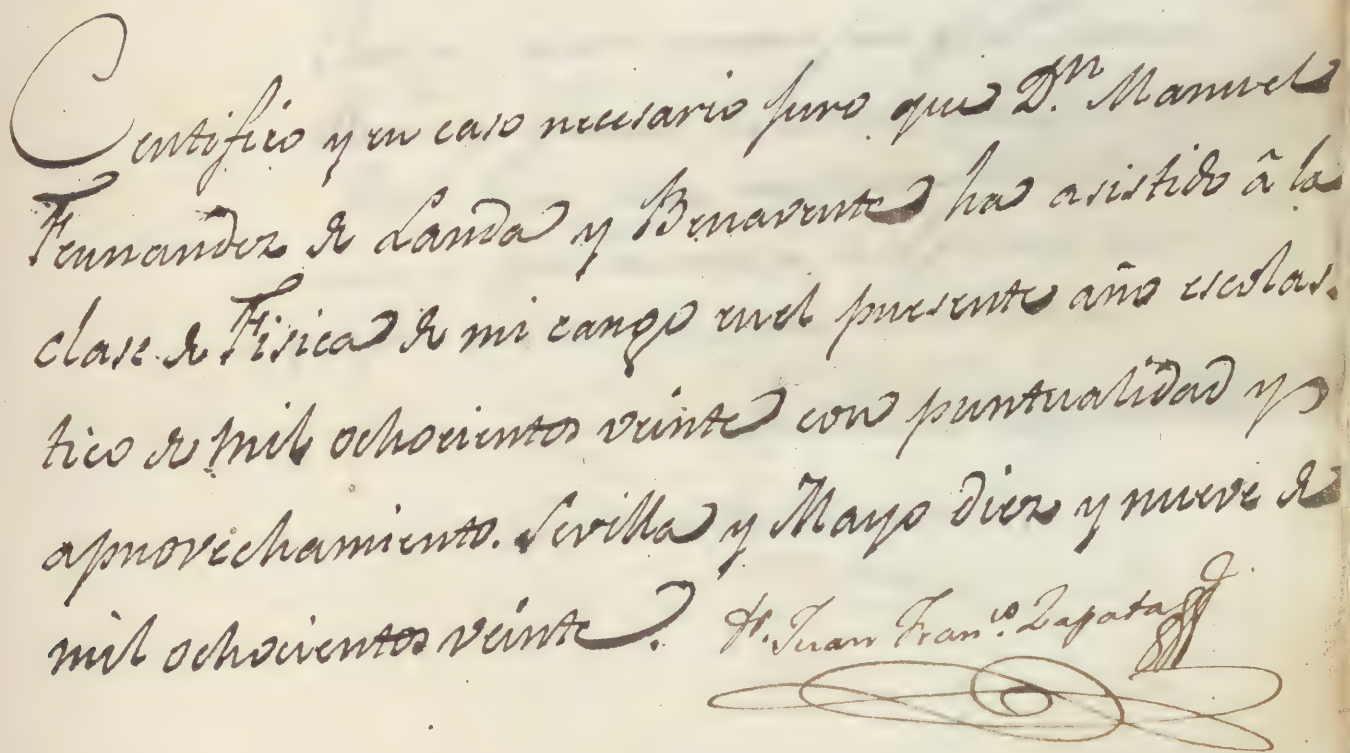 Certifico y en caso necesario juro que D.n Manuel
Fernandez de Landa y Benavente ha asistido â la
clase de Fisica de mi cargo en el presente año escolas-
tico de mil ochocientos veinte con puntualidad y
aprovechamiento. Sevilla y Mayo diez y nueve de
mil ochocientos veinte.
Juan Fran.co Zapata